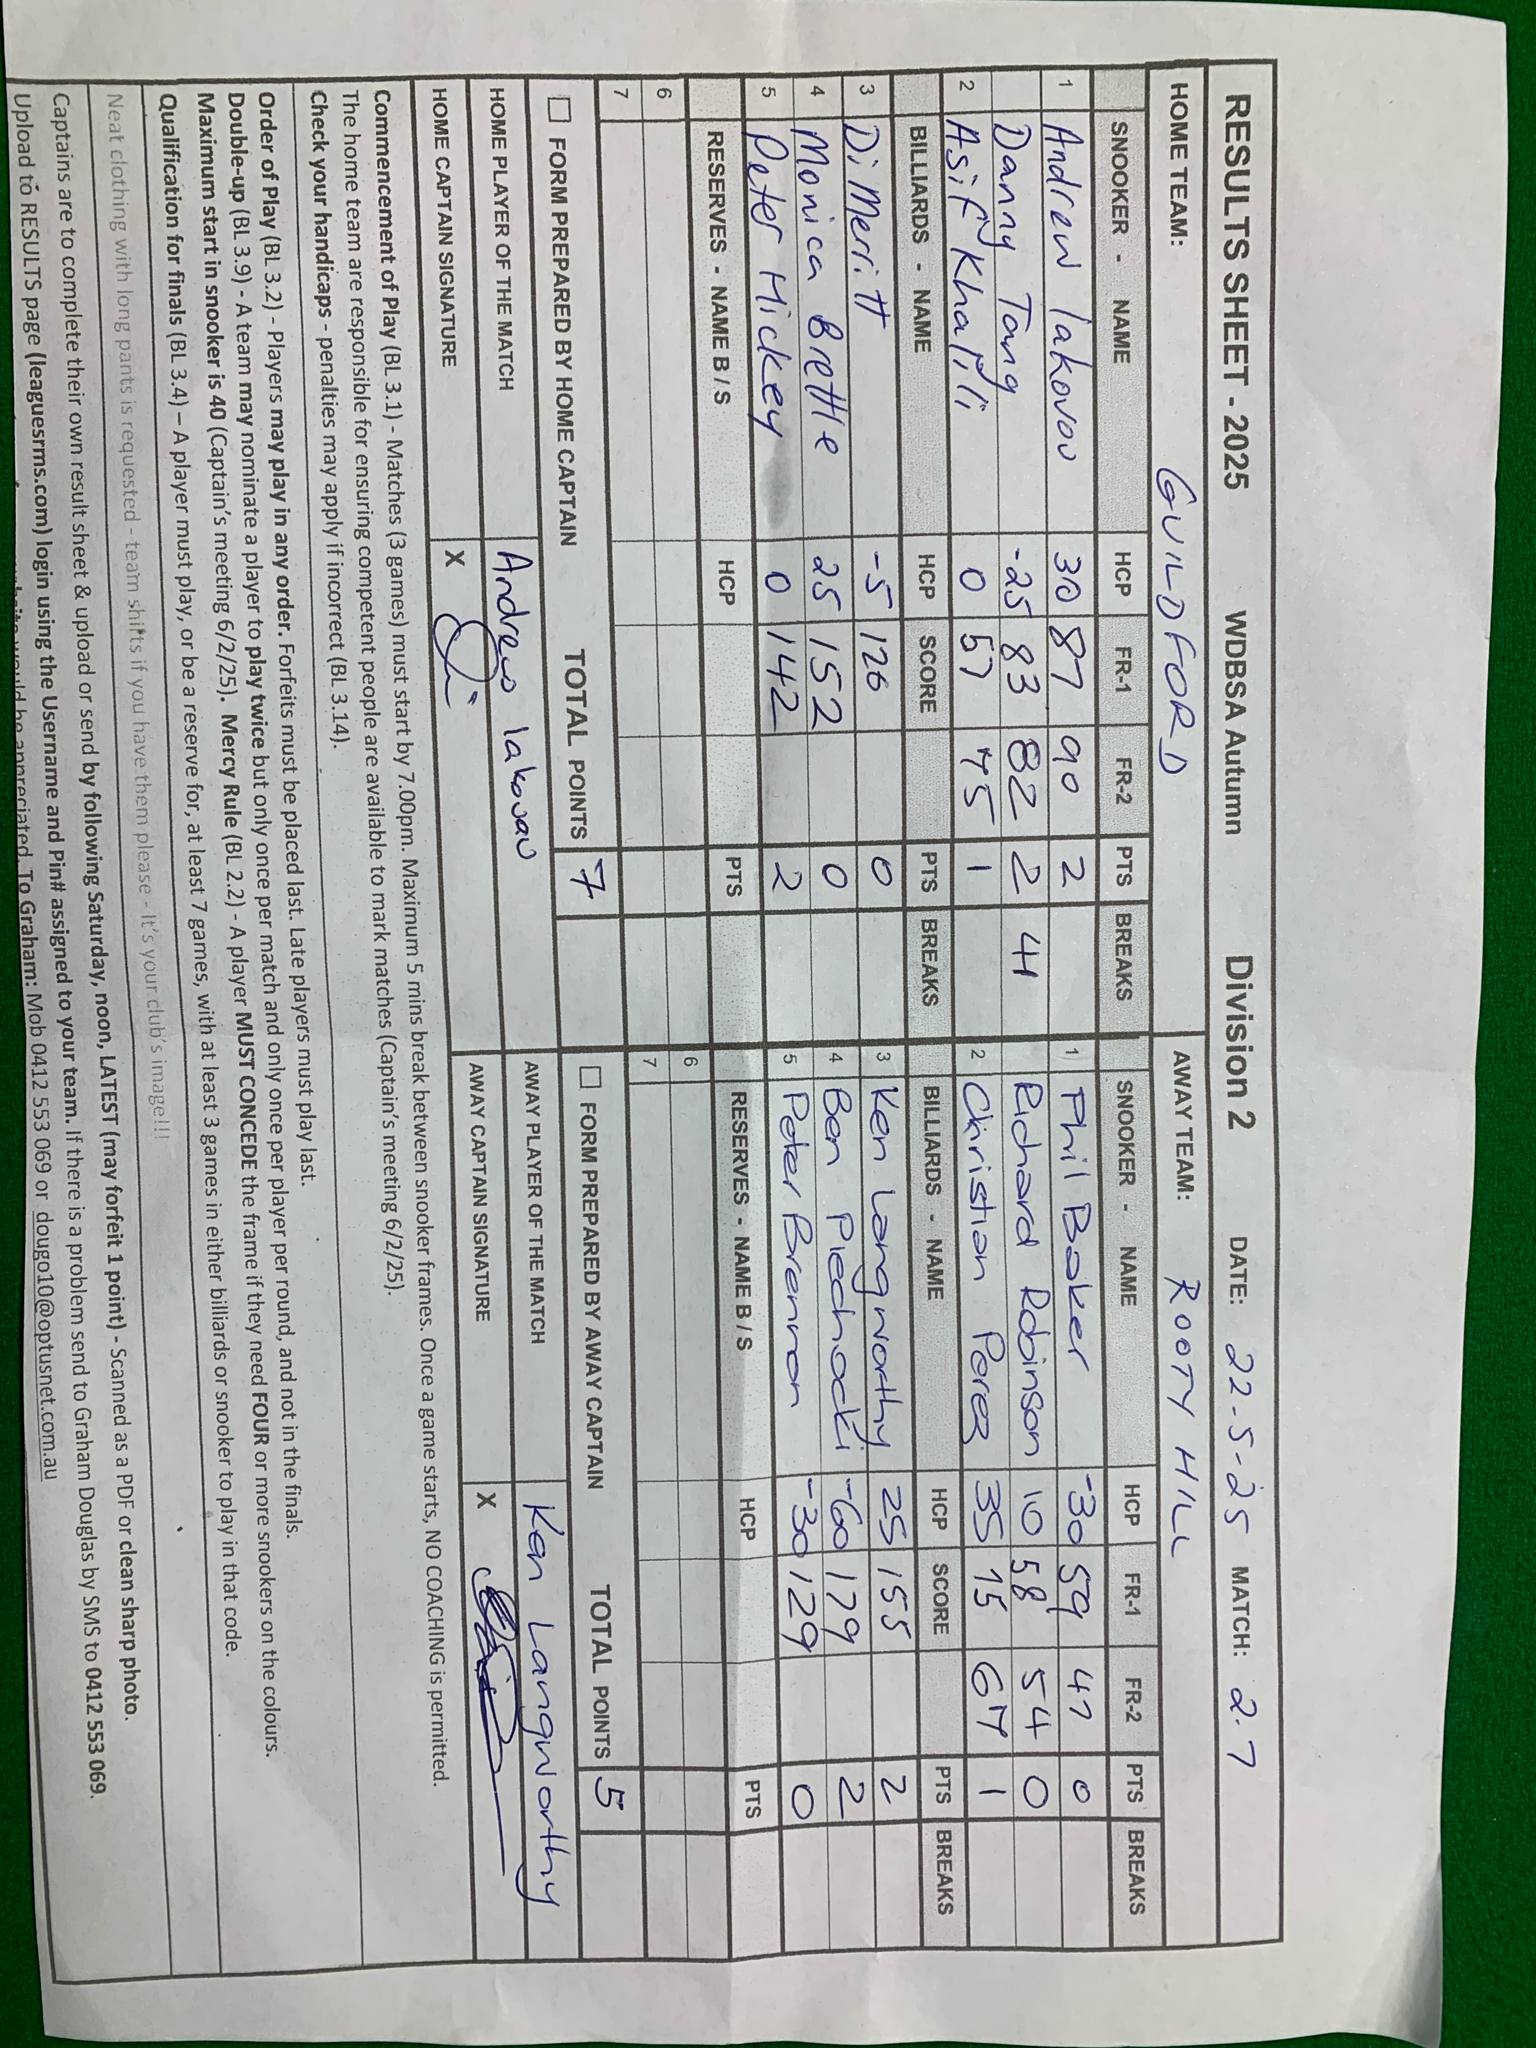 RESULTS SHEET - 2025 WDBSA Autumn Division 2 DATE: 22-5-25 MATCH: 2.7
HOME TEAM: GUILDFORD AWAY TEAM: ROOTY HILL
SNOOKER - NAME HCP FR-1 FR-2 PTS BREAKS SNOOKER - NAME HCP FR-1 FR-2 PTS BREAKS
1 Andrew Iakovou 30 87 90 2 1 Phil Baker -30 59 47 0
Danny Tang -25 83 82 2 41 Richard Robinson 10 58 54 0
2 Asif Khalili 0 57 75 1 2 Christian Perez 35 75 67 1
BILLIARDS - NAME HCP SCORE PTS BREAKS BILLIARDS - NAME HCP SCORE PTS BREAKS
3 Di Meritt -5 126 0 3 Ken Langworthy 25 155 2
4 Monica Brettle 25 152 0 4 Ben Piechocki -60 179 2
5 Peter Hickey 0 142 2 5 Peter Brennan -30 129 0
RESERVES - NAME B / S HCP PTS RESERVES - NAME B / S HCP PTS
6 6
7 7
FORM PREPARED BY HOME CAPTAIN TOTAL POINTS 7 FORM PREPARED BY AWAY CAPTAIN TOTAL POINTS 5
HOME PLAYER OF THE MATCH Andrew Iakovou AWAY PLAYER OF THE MATCH Ken Langworthy
HOME CAPTAIN SIGNATURE X AWAY CAPTAIN SIGNATURE X
Commencement of Play (BL 3.1) - Matches (3 games) must start by 7.00pm. Maximum 5 mins break between snooker frames. Once a game starts, NO COACHING is permitted.
The home team are responsible for ensuring competent people are available to mark matches (Captain's meeting 6/2/25).
Check your handicaps - penalties may apply if incorrect (BL 3.14).
Order of Play (BL 3.2) - Players may play in any order. Forfeits must be placed last. Late players must play last.
Double-up (BL 3.9) - A team may nominate a player to play twice but only once per match and only once per player per round, and not in the finals.
Maximum start in snooker is 40 (Captain's meeting 6/2/25). Mercy Rule (BL 2.2) - A player MUST CONCEDE the frame if they need FOUR or more snookers on the colours.
Qualification for finals (BL 3.4) – A player must play, or be a reserve for, at least 7 games, with at least 3 games in either billiards or snooker to play in that code.
Neat clothing with long pants is requested - team shirts if you have them please - It's your club's image!!!
Captains are to complete their own result sheet & upload or send by following Saturday, noon, LATEST (may forfeit 1 point) - Scanned as a PDF or clean sharp photo.
Upload to RESULTS page (leaguesrms.com) login using the Username and Pin# assigned to your team. If there is a problem send to Graham Douglas by SMS to 0412 553 069.
would be appreciated. To Graham: Mob 0412 553 069 or dougo10@optusnet.com.au